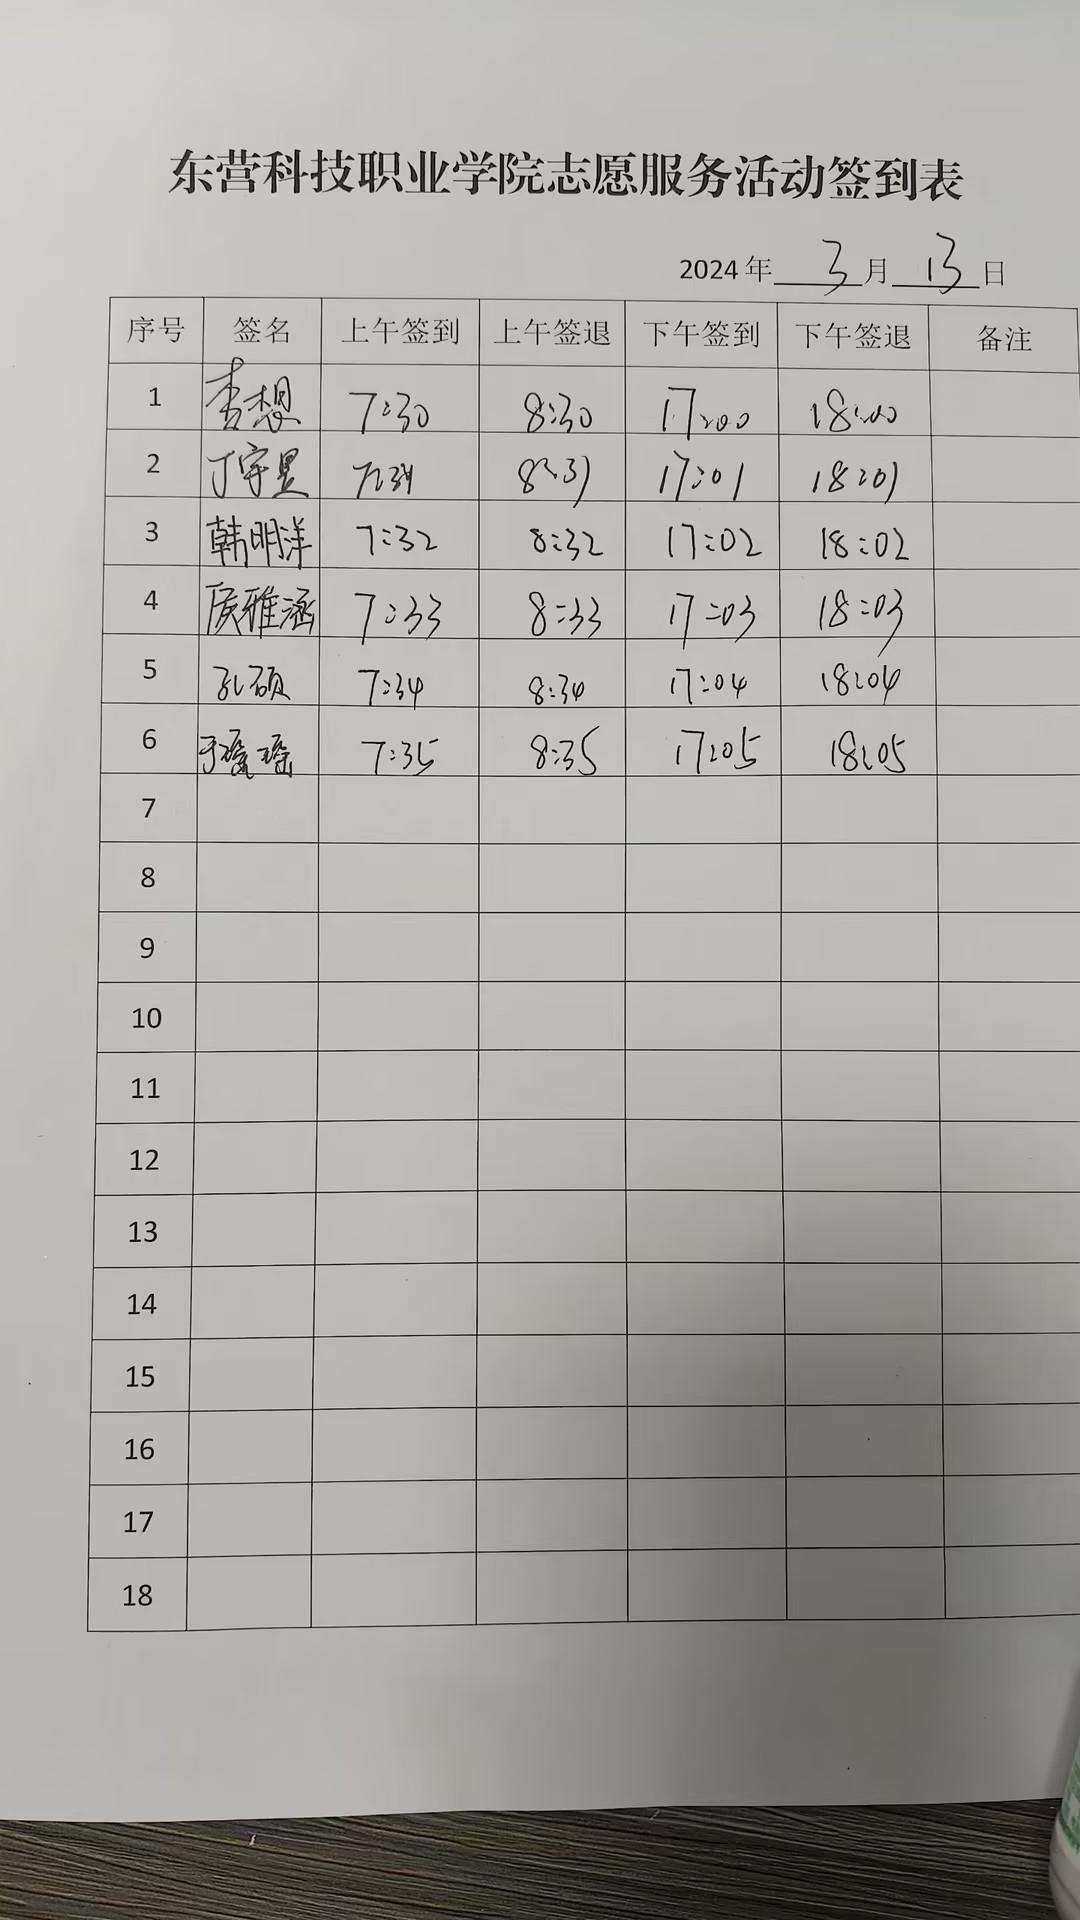 东营科技职业学院志愿服务活动签到表
2024年 3 月 13 日
序号 签名 上午签到 上午签退 下午签到 下午签退 备注
1 李想 7:30 8:30 17:00 18:00
2 丁宇昱 7:31 8:31 17:01 18:01
3 韩明洋 7:32 8:32 17:02 18:02
4 雅涵 7:33 8:33 17:03 18:03
5 孔硕 7:34 8:34 17:04 18:04
6 于瑶瑶 7:35 8:35 17:05 18:05
7
8
9
10
11
12
13
14
15
16
17
18